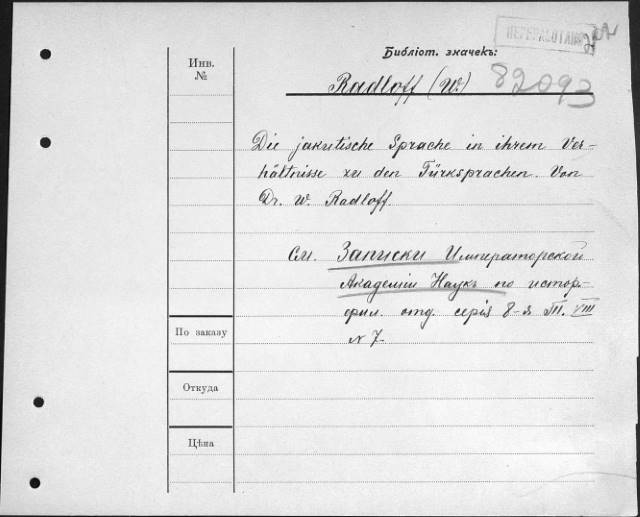 ПЕРЕРАБОТАНО
Библіот. значекъ:
Инв.
№
Radloff (W.) 82093
Die jakutische Sprache in ihrem Ver-
hältnisse zu den Türksprachen. Von
Dr. W. Radloff.
См. Записки Императорской
Академіи Наукъ по истор.-
фил. отд. серія 8-я Т. VIII
N 7.
По заказу
Откуда
Цѣна